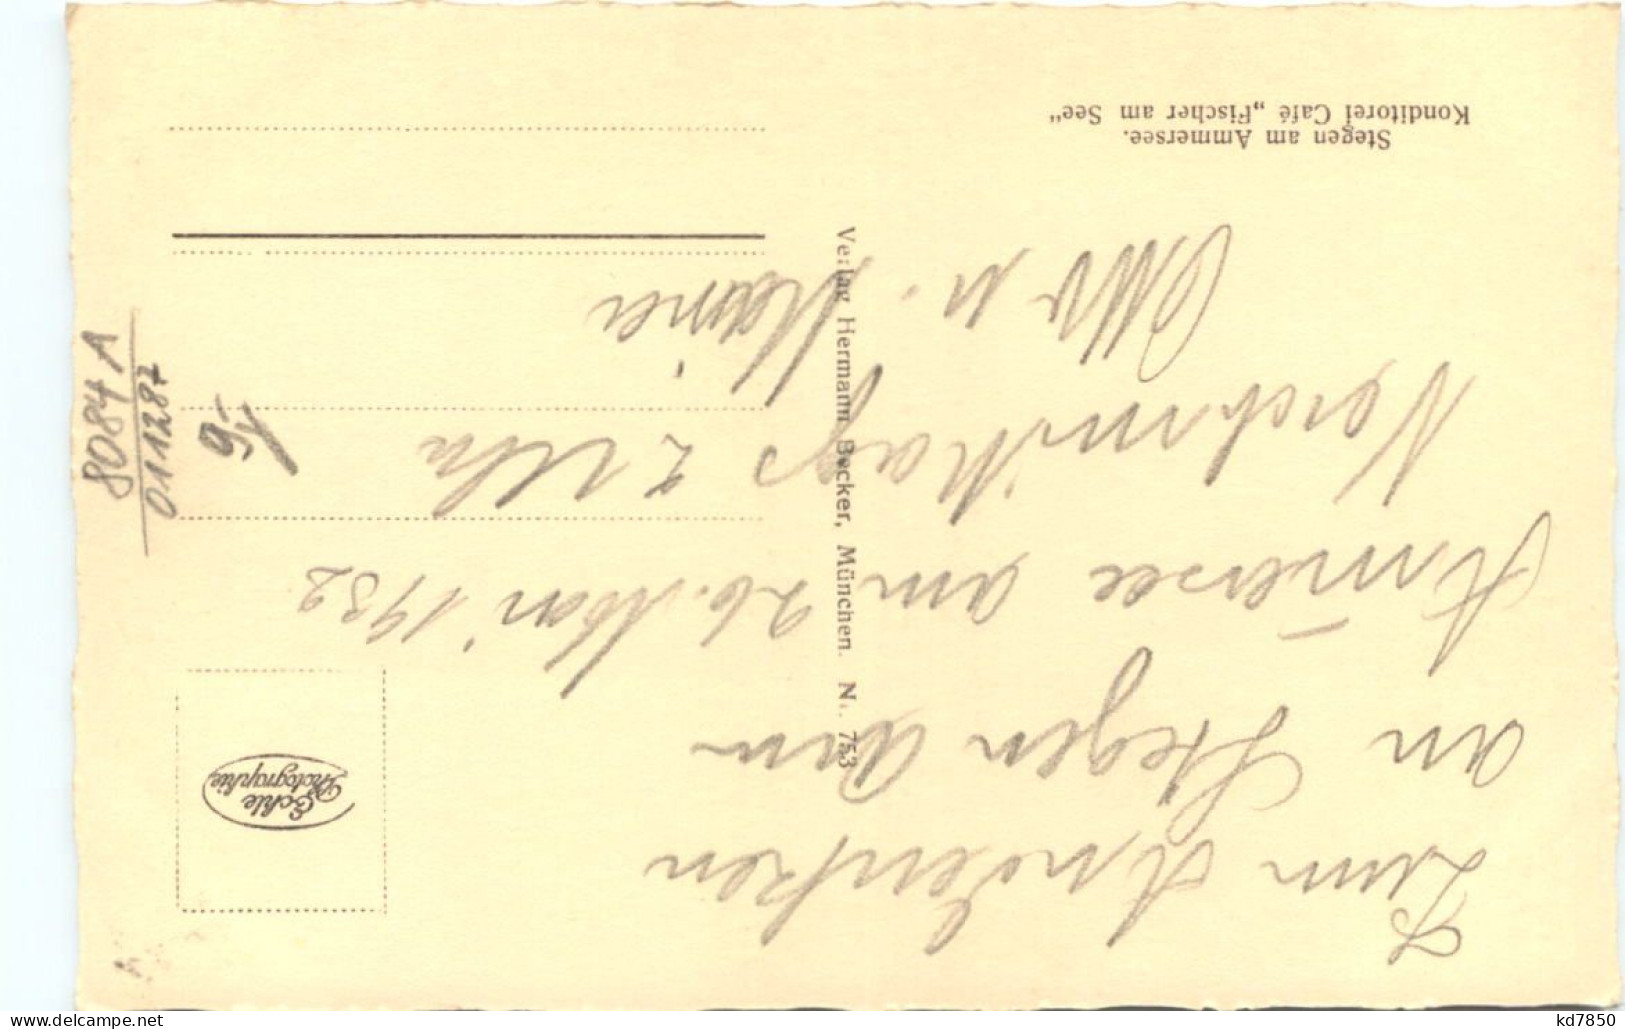 Zum Andenken
an Stegen am
Ammersee am 26. Mai 1932
Nachmittags 2 Uhr
Otto u. Maria
Stegen am Ammersee.
Konditorei Café „Fischer am See“
Verlag Hermann Becker, München. Nr. 753
Echte
Photographie
8084 A
011287
9,-
www.delcampe.net
kd7850